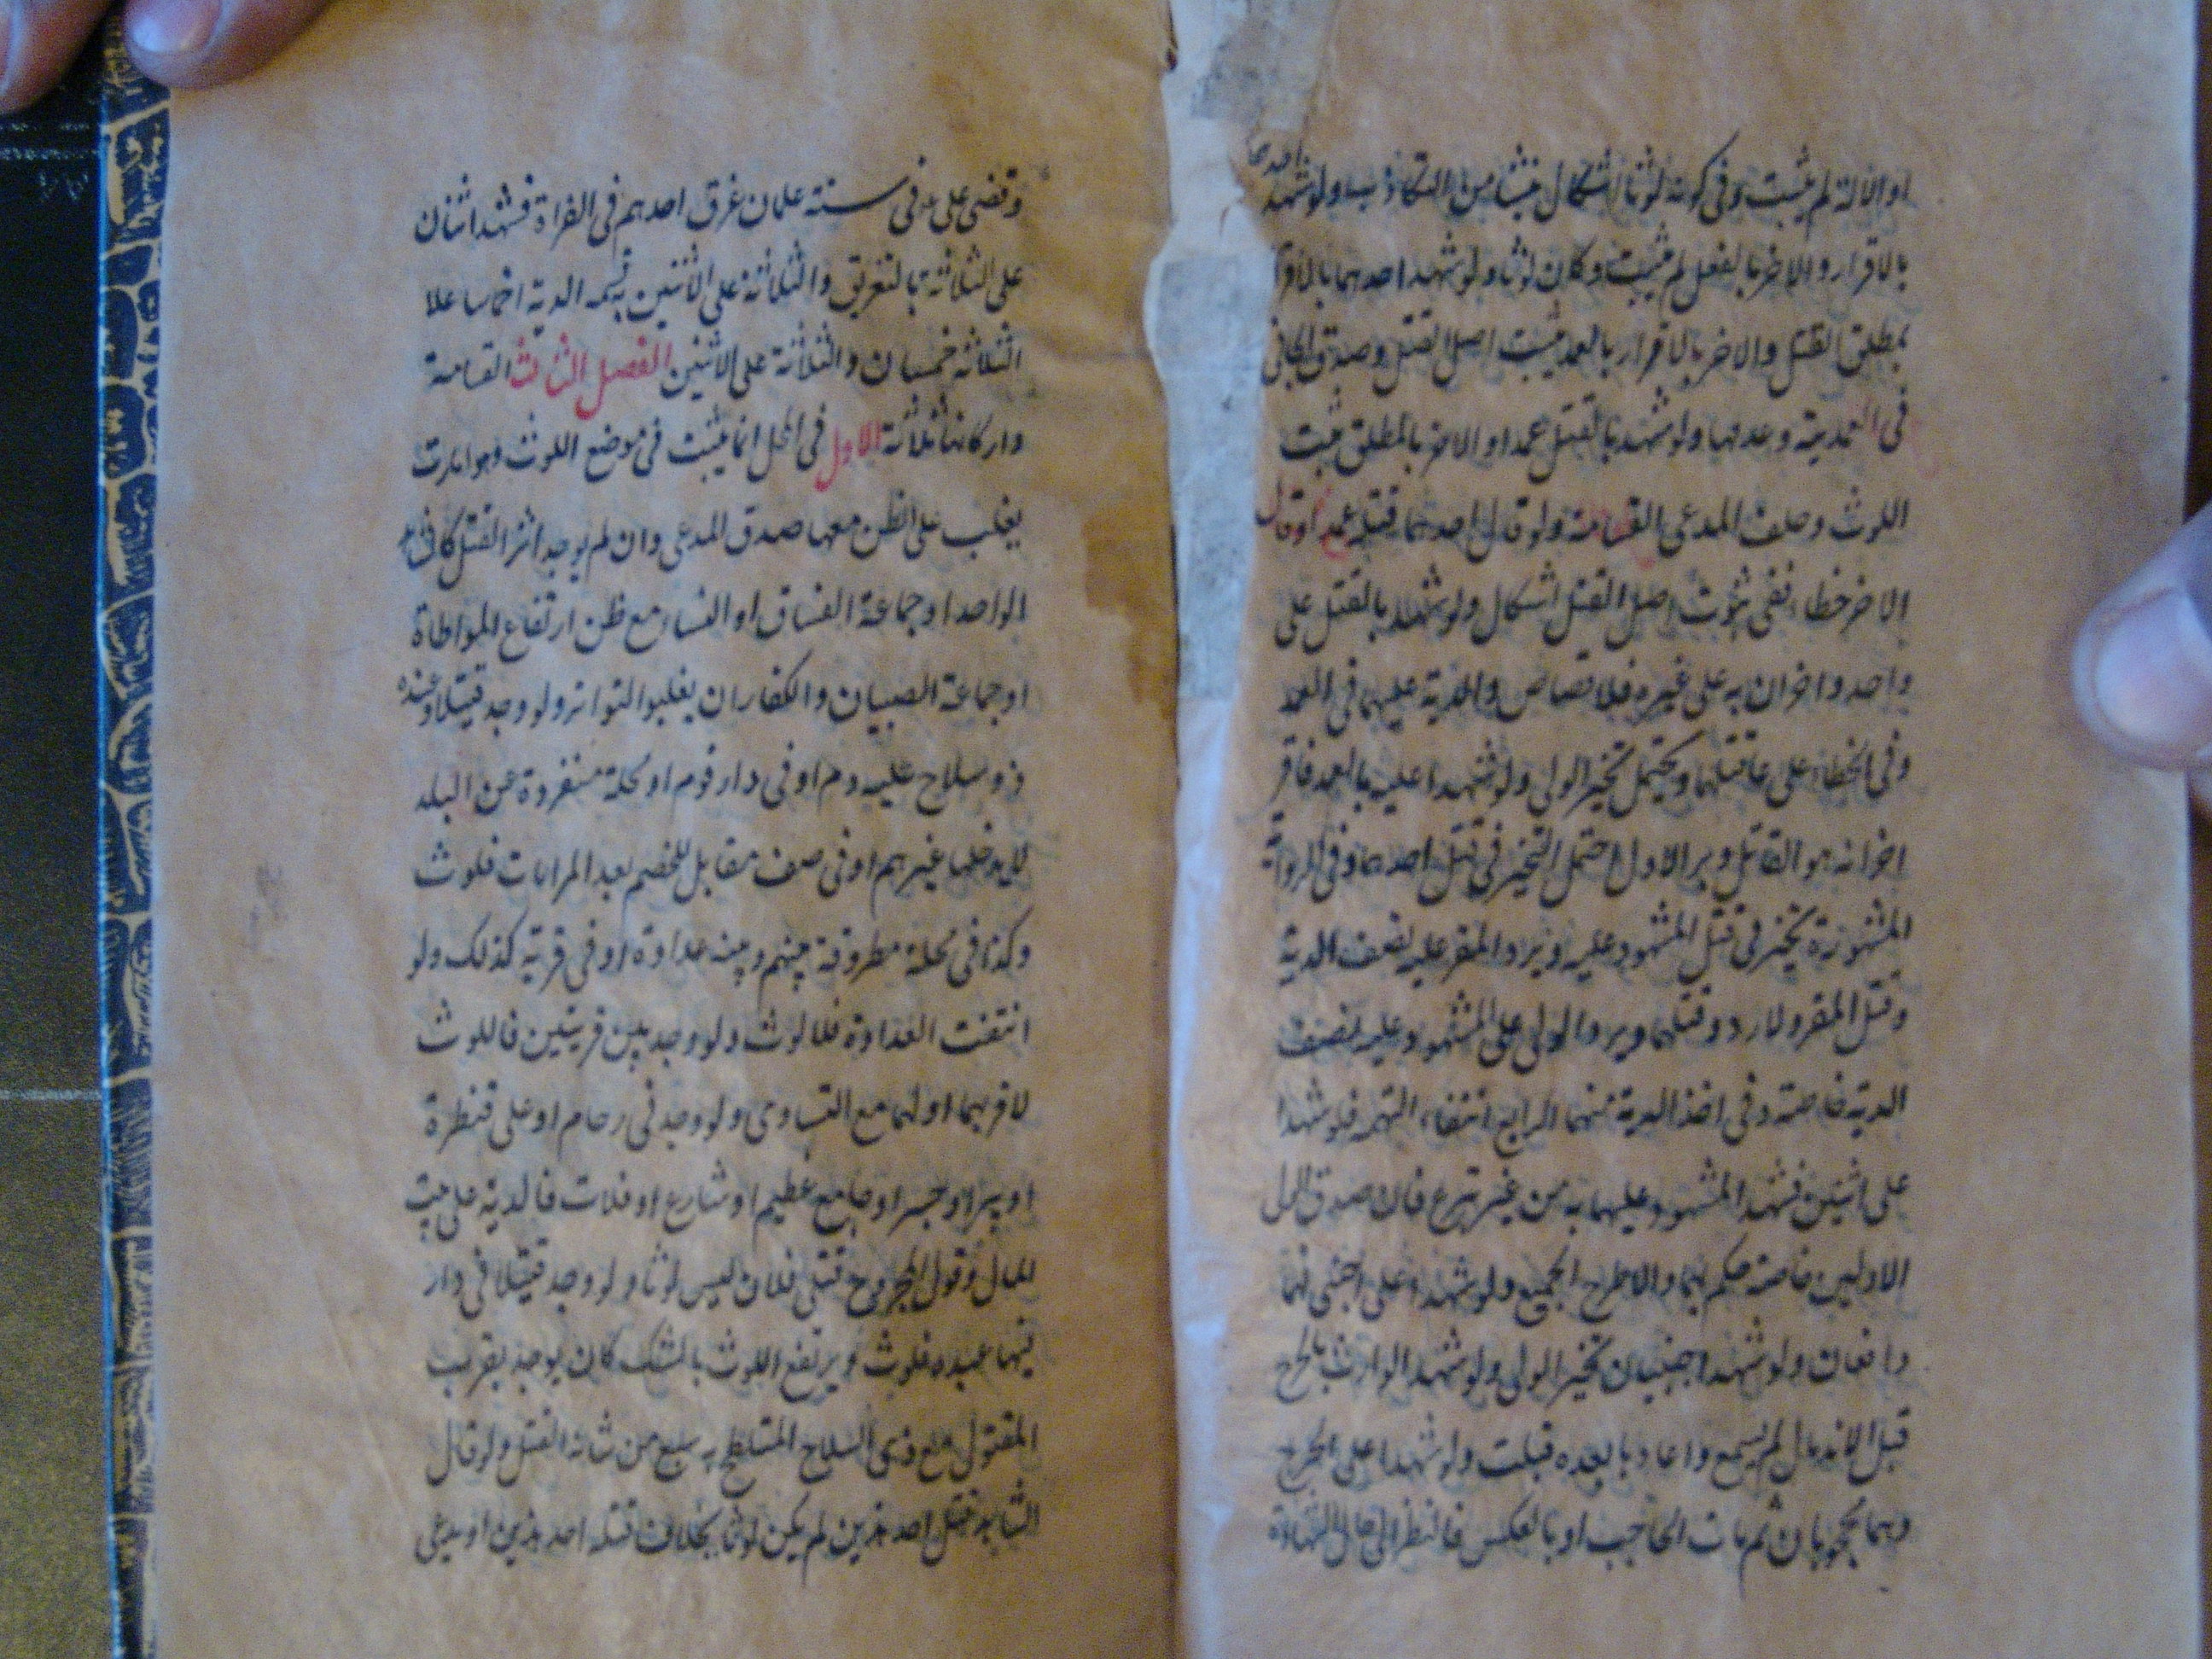 احدهما
او الالة لم يثبت وفى كونه لوثا اشكال ينشا من التكاذب ولو شهد
بالاقرار والاخر بالفعل لم يثبت وكان لوثا ولو شهد احدهما بالاقرار
بمطلق القتل والاخر بالاقرار بالعمد يثبت اصل القتل وصدق الجانى
فى العمدية وعدمها ولو شهد بالقتل عمدا والاخر بالمطلق ثبت
اللوث وحلف المدعى القسامة ولو قال احدهما قتله عمدا وقال
الاخر خطاء ففى ثبوت اصل القتل اشكال ولو شهد بالقتل على
واحد واخران به على غيره فلا قصاص والدية عليهما فى العمد
وفى الخطاء على عاقلتهما ويحتمل تخير الولى ولو شهدا عليه بالعمد فاقر
اخر انه هو القاتل وبرا الاول احتمل التخير فى قتل احدهما وفى الرواية
المشهورة يتخير فى قتل المشهود عليه ويرد المقر عليه نصف الدية
وقتل المقر ولا رد وقتلهما ويرد الولى على المشهود عليه نصف
الدية خاصة وفى اخذ الدية منهما الرابع انتفاء التهمة فلو شهدا
على اثنين فشهد المشهود عليهما به من غير تبرع فان صدق الولى
الاولين خاصة حكم بهما والا طرح الجميع ولو شهدا على اجنبى فهما
دافعان ولو شهد اجنبيان تخير الولى ولو شهد الوارث بالجرح
قبل الاندمال لم يسمع واعادها بعده قبلت ولو شهدا على الجرح
وهما محجوبان ثم مات الحاجب او بالعكس فالنظر الى حال الشهادة
وقضى على ع فى ستة غلمان غرق احدهم فى الفراة فشهد اثنان
على الثلاثة بالتغريق والثلاثة على الاثنين به قسمة الدية اخماسا على
الثلاثة خمسان والثلاثة على الاثنين الفصل الثالث القسامة
واركانها ثلاثة الاول فى المحل انما يثبت فى موضع اللوث وهو امارت
يغلب على الظن معها صدق المدعى وان لم يوجد اثر القتل كالشاهد
الواحد او جماعة الفساق او النساء مع ظن ارتفاع المواطاة
او جماعة الصبيان والكفار ان يغلبوا التواتر ولو وجد قتيلا وعنده
ذو سلاح عليه دم او فى دار قوم او محلة منفردة عن البلد
لا يدخلها غيرهم او فى صف مقابل للخصم بعد المرامات فلوث
وكذا فى محلة مطروقة بينهم وبينه عداوة او فى قرية كذلك ولو
انتفت العداوة فلا لوث ولو وجد بين قريتين فاللوث
لاقربهما او لهما مع التساوى ولو وجد فى زحام او على قنطرة
او بير او جسر او جامع عظيم او شارع او فلات فالدية على بيت
المال وقول المجروح قتلنى فلان ليس لوثا ولو وجد قتيلا فى دار
فيها عبده فلوث ويرتفع اللوث بالشك كان يوجد بقرب
المقتول مع ذى السلاح المتلطخ به سبع من شانه القتل ولو قال
الشاهد قتل احد هذين لم يكن لوثا بخلاف قتله احد هذين او يدعى